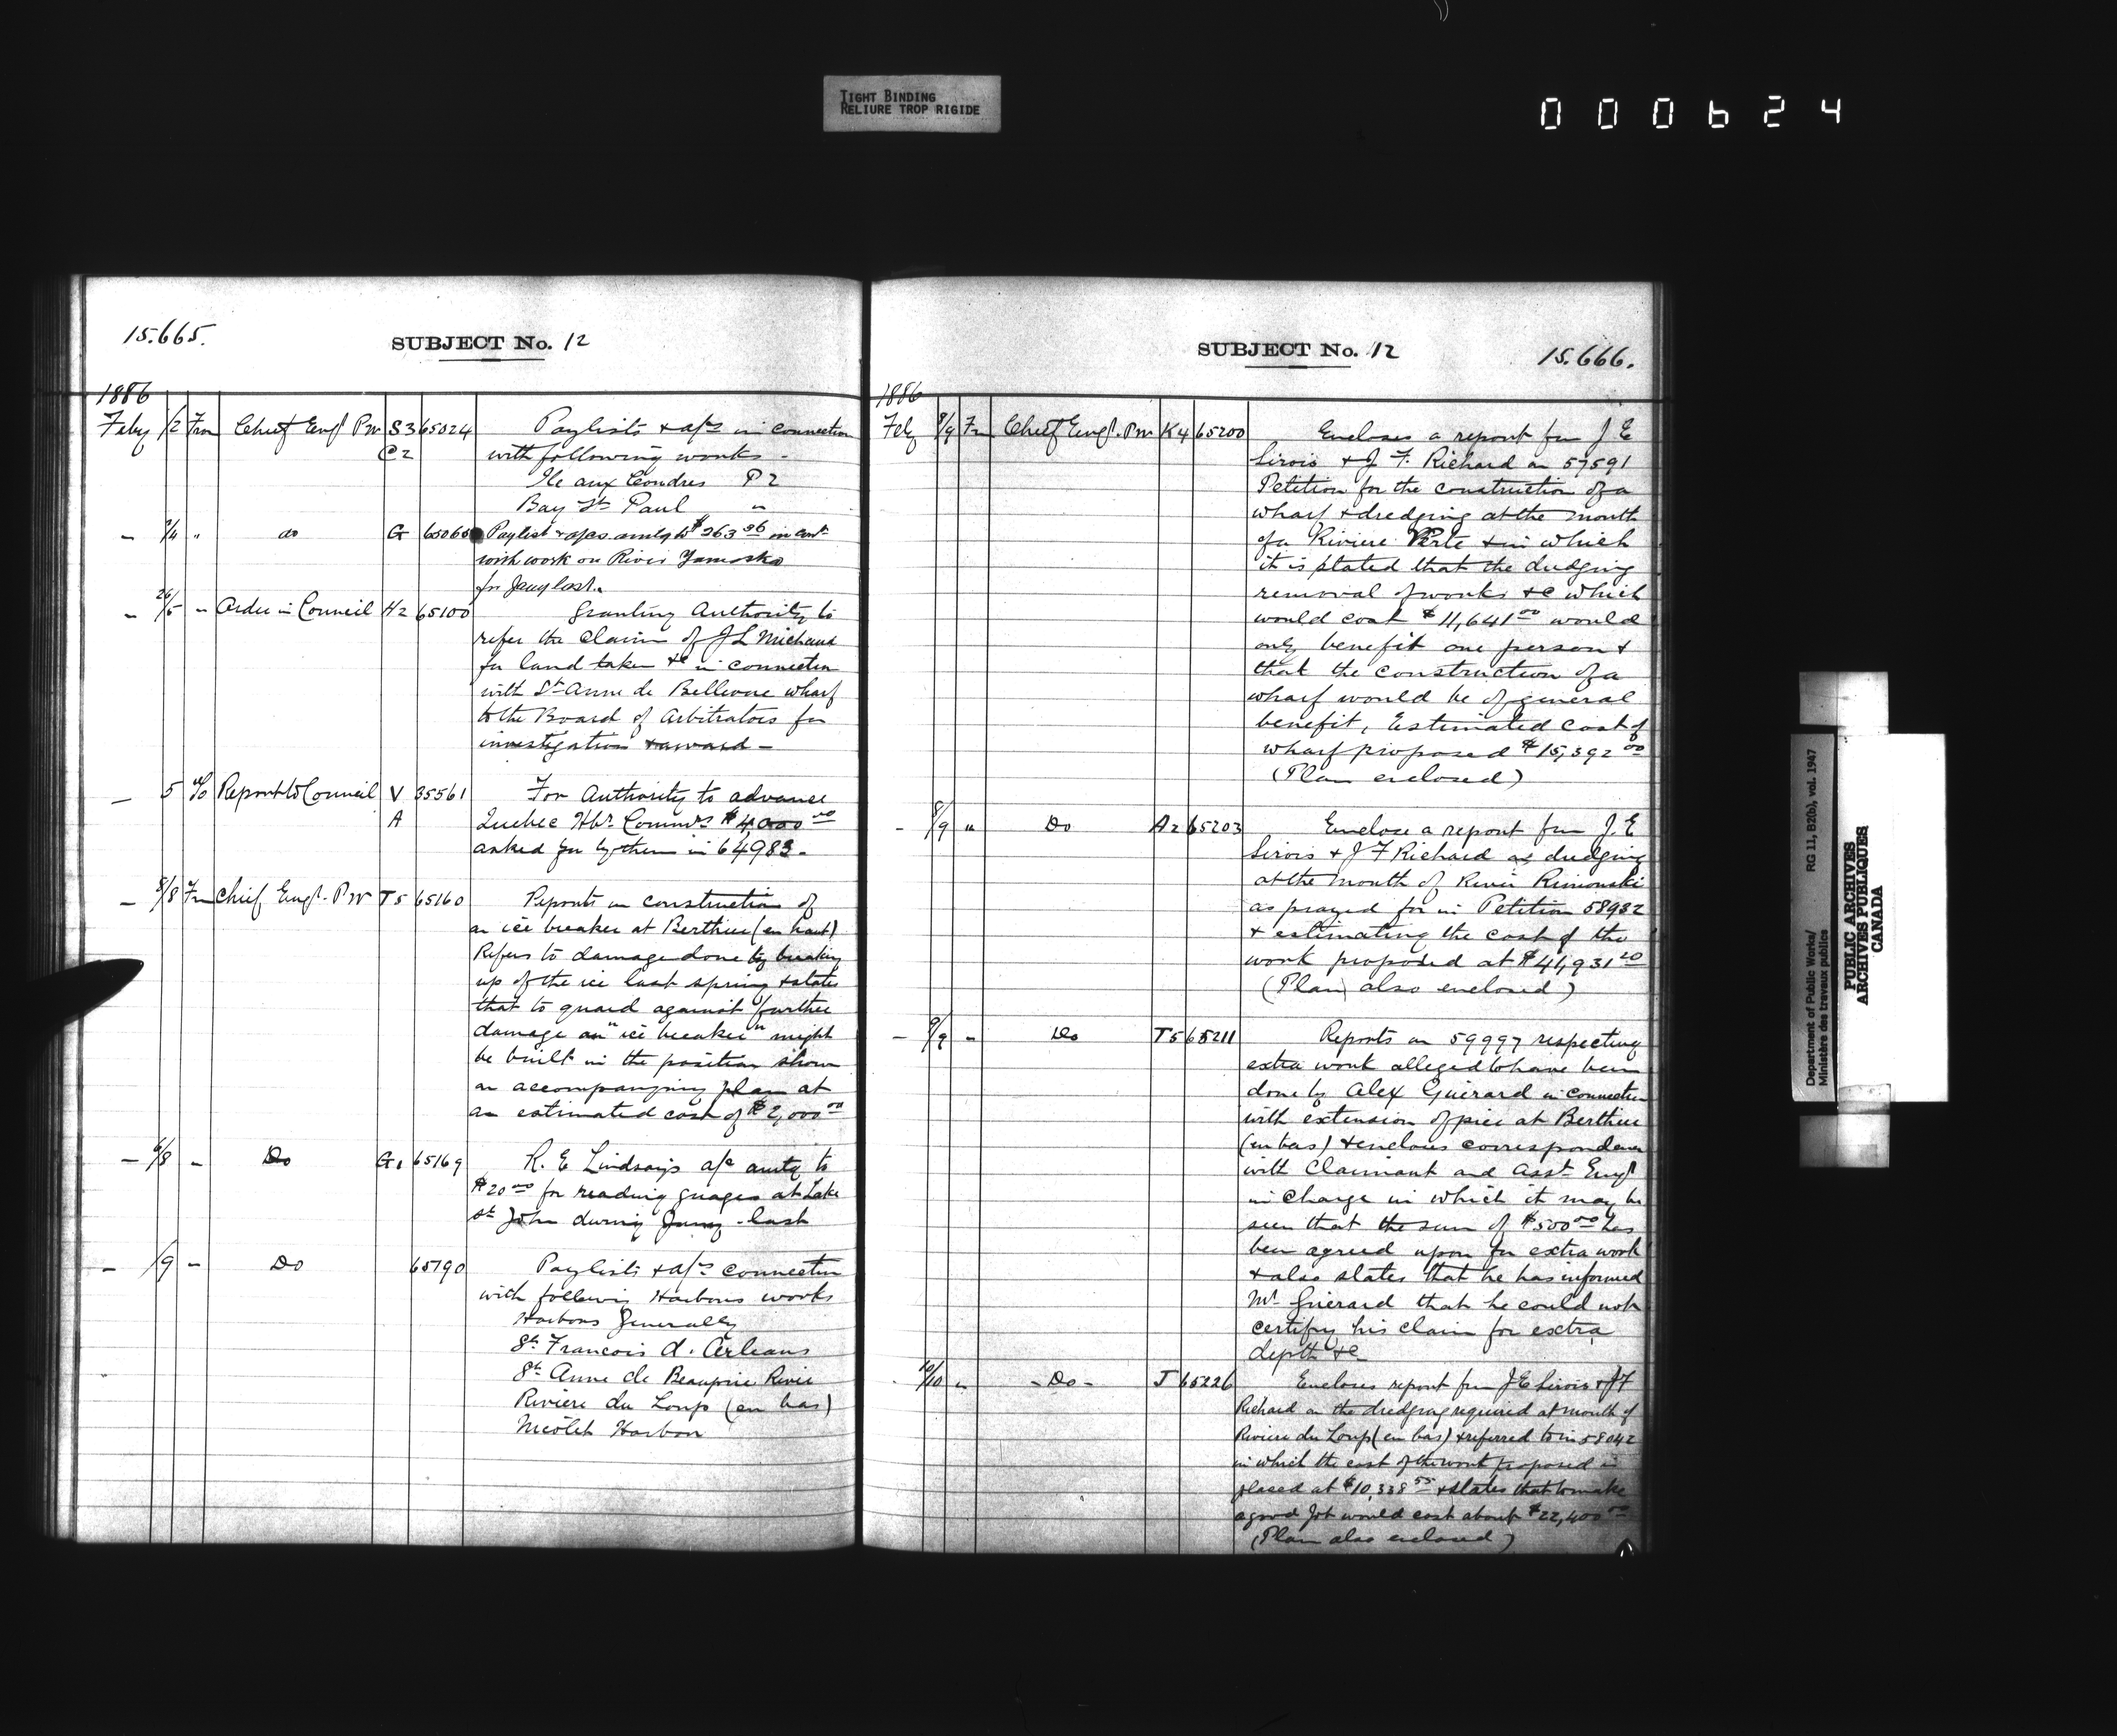 TIGHT BINDING
RELIURE TROP RIGIDE
000624
15.665.
SUBJECT No. 12
1886
Feby /2 Frm Chief Engr PW S3 65024 Paylists & a/cs in connection
C2 with following works -
Ile aux Coudres P2
Bay St Paul "
- 2/4 " do G 65065 Paylist & a/cs amtg to $263.36 in cont
with work on River Yamaska
for Jany last.
- 26/5 " Order in Council H2 65100 Granting Authority to
refer the claim of J L Michaud
for land taken &c in connection
with St Anne de Bellevue wharf
to the Board of Arbitrators for
investigation & award -
- 5 To Report to Council V 35561 For Authority to advance
A Quebec Hbr Commrs $4,000 00
asked for by them in 64983.
- 5/8 Frm Chief Engr. PW T5 65160 Reports on construction of
an ice breaker at Berthier (en haut)
Refers to damage done by breaking
up of the ice last spring & states
that to guard against further
damage an "ice breaker" might
be built in the position shown
on accompanying plan at
an estimated cost of $2,000 00
- 6/8 - Do G1 65169 R. E Lindsay's a/c amtg to
$20 00 for reading guages at Lake
St John during Jany last
- /9 - Do 65190 Paylists & a/cs connection
with following Harbours works
Harbors Generally
St Francois d. Orleans
St Anne de Beauprie River
Riviere du Loup (en bas)
Nicolet Harbor
SUBJECT No. 12
15.666.
1886
Feby 8/9 Fm Chief Engr. PW K4 65200 Encloses a report fm J E
Sirois & J F. Richard on 57591
Petition for the construction of a
wharf & dredging at the mouth
of a Riviere Verte & in which
it is stated that the dredging
removal of works &c which
would cost $11,641 00 would
only benefit one person &
that the construction of a
wharf would be of general
benefit, Estimated cost of
wharf proposed $15,392 00
(Plan enclosed)
- 8/9 " Do A2 65203 Enclose a report fm J. E
Sirois & J F Richard on dredging
at the mouth of River Rimouski
as prayed for in Petition 58932
& estimating the cost of the
work proposed at $41,931 20
(Plan also enclosed)
- 9/9 - Do T5 65211 Reports on 59997 respecting
extra work alleged to have been
done by Alex Guérard in connection
with extension of pier at Berthier
(en bas) & encloses correspondence
with Claimant and Asst. Engr
in Charge in which it may be
seen that the sum of $500 00 has
been agreed upon for extra work
& also states that he has informed
Mr Guérard that he could not
certify his claim for extra
depth &c
10/10 " - Do - J 65226 Encloses report fm J E Sirois & J F
Richard on the dredging required at mouth of
Riviere du Loup (en bas) & referred to in 58042
in which the cost of the work proposed is
placed at $10,338 55 & states that to make
a good job would cost about $22,400 00
(Plan also enclosed)
Department of Public Works/ RG 11, B2(b), vol. 1947
Ministère des travaux publics
PUBLIC ARCHIVES
ARCHIVES PUBLIQUES
CANADA